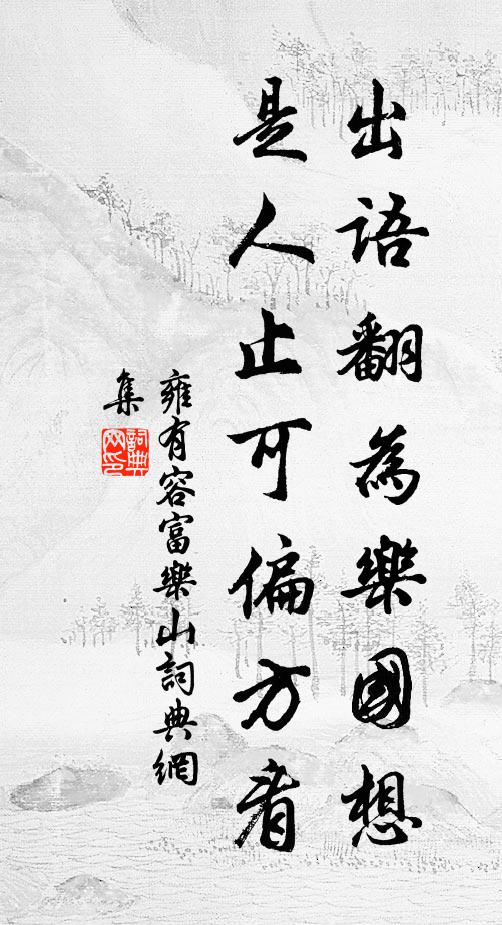 出語翻為樂國想
是人止可偏方看
雍有容富樂山詞典網
集
詞典
网印